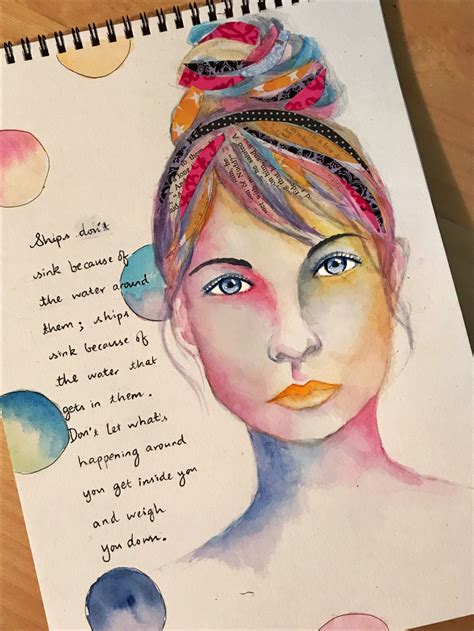 Ships don't
sink because of
the water around
them; ships
sink because of
the water that
gets in them.
Don't let what's
happening around
you get inside you
and weigh
you down.